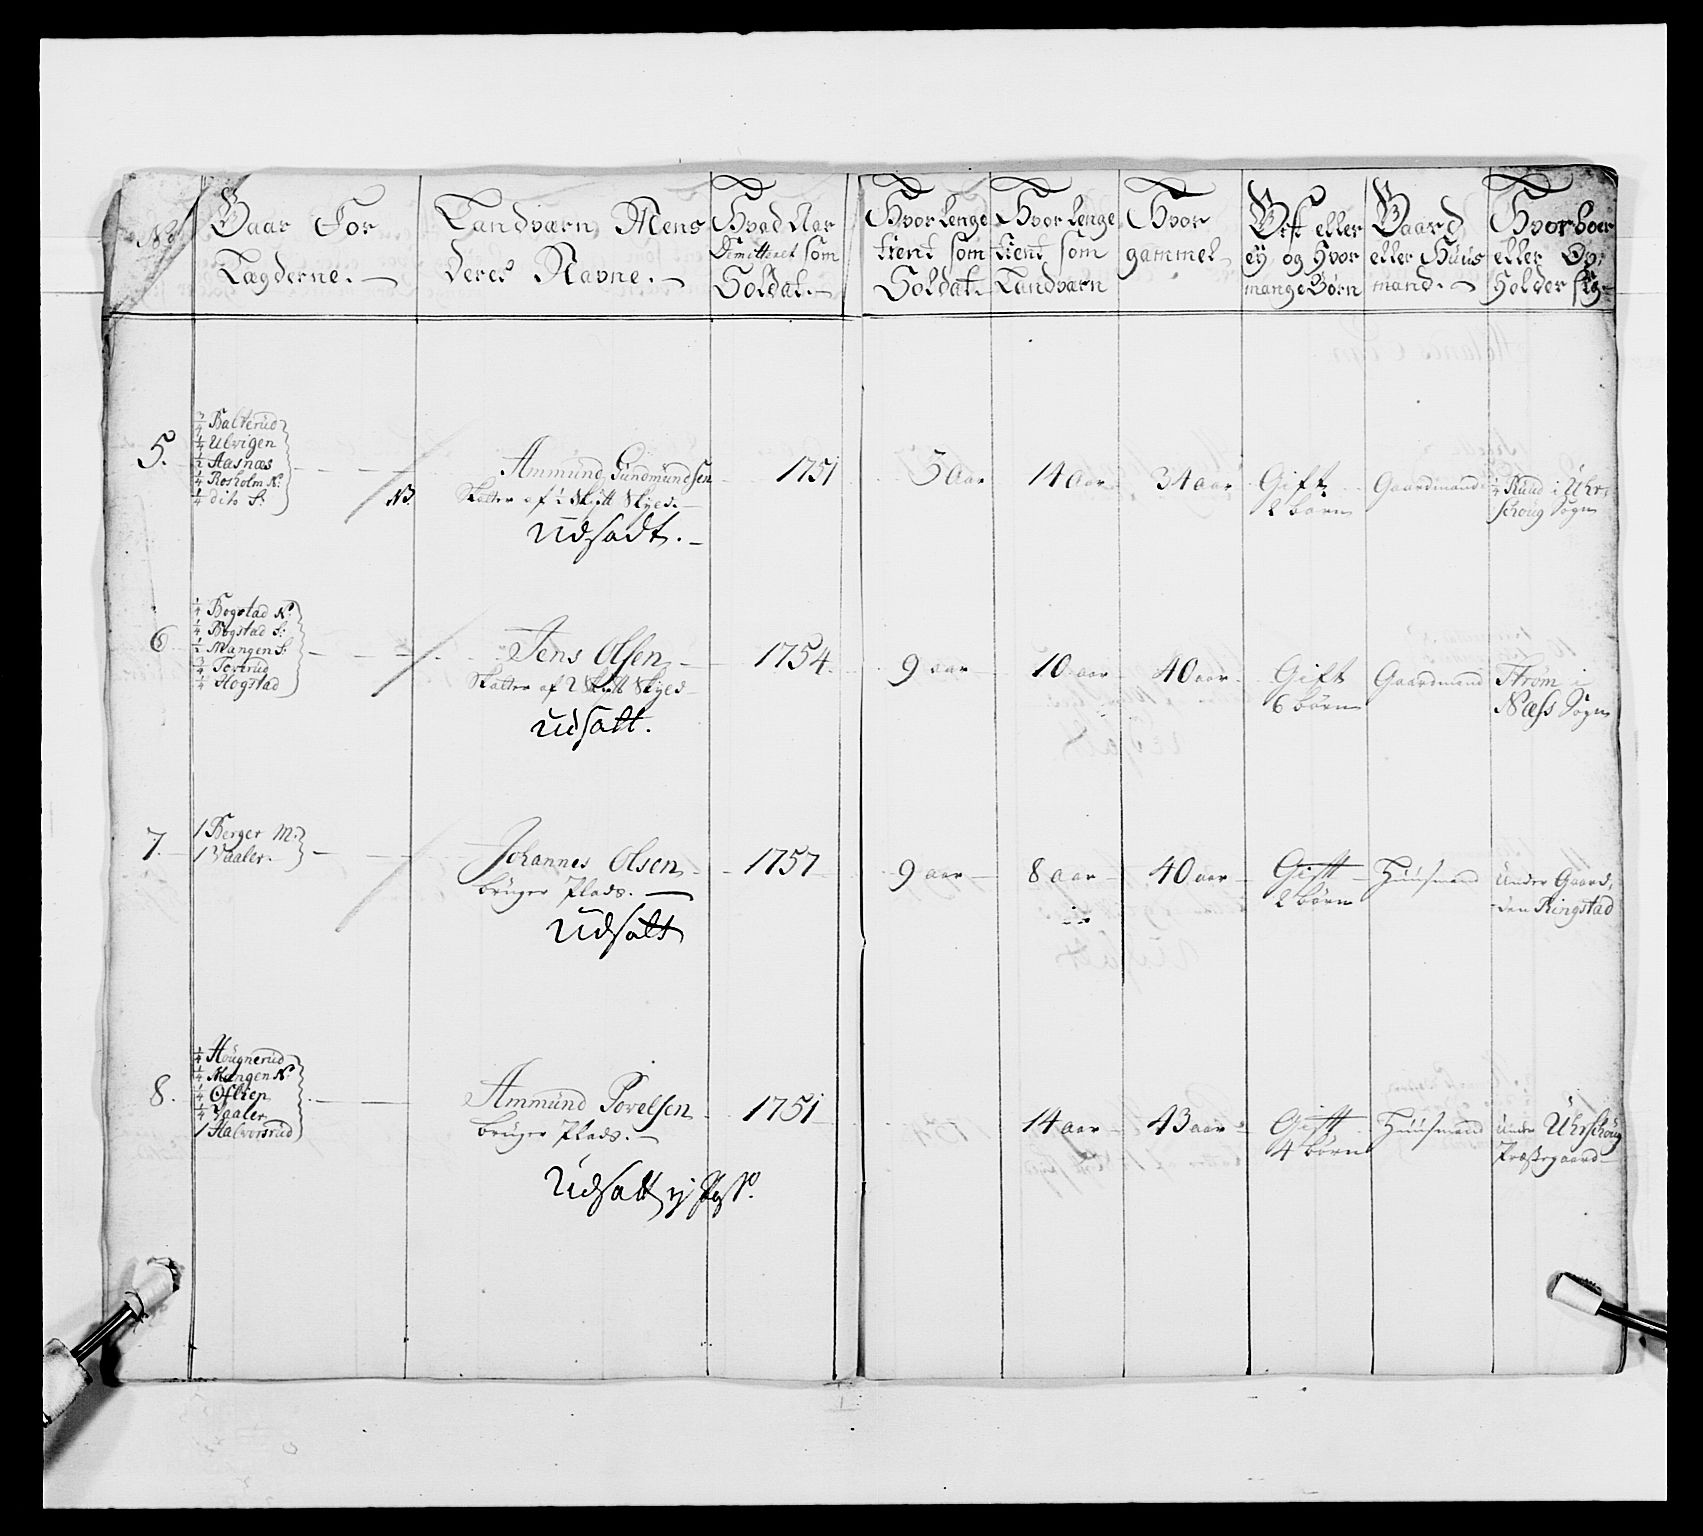 No
Gaar For
Lægderne.
Landværn Mens
deres Navne.
Hvad Aar
Dimitteret som
Soldat.
Hvor lenge
tient som
Soldat.
Hvor lenge
tient som
Landværn
Hvor
gammel
Gift eller
ey og Hvor
mange Børn
Gaard
eller Huus
mand.
Hvor boer
eller Op
holder sig
5.
3/4 Balterüd
1/4 Ulvigen
1/2 Aasnæs
1/4 Rosholm N:
1/4 dito S:
NB.
Ammünd Gündmündsen
Skatter af 1/2 Skytt Skyed.
Udsadt.
1751
3 Aar
14 Aar
34 aar
Gift
2 børn
Gaardmand
1/4 Rüud i Uhr-
schoug Sogn
6
1/4 Bogstad N:
1/4 Bogstad S:
1/2 Mangen S:
3/4 Toverud
2/4 Hogstad
Jens Olsen
Skatter af 2 Skytt Skyed
udsatt.
1754.
9 aar
10 aar
40 aar
Gift
6 børn
Gaardmand
Strøm i
Næss Sogn
7.
1 Berger M:
1 Vaaler.
Johannes Olsen
brüger Plads.
Udsatt
1757
9 aar
8 aar
40 aar
Gift
2 børn
Huusmand
Under Gaar-
den Ringstad
8.
1/4 Hougnerüd
1/4 Mangen N:
1/4 Oflien
1/4 Vaaler
1 Halversrüd
Ammünd Povelsen
brüger Plads.
Udsatt
1751
14 aar
43 aar
Gift
4 børn
Huusmand
under Uhrschoug
Præstegaard